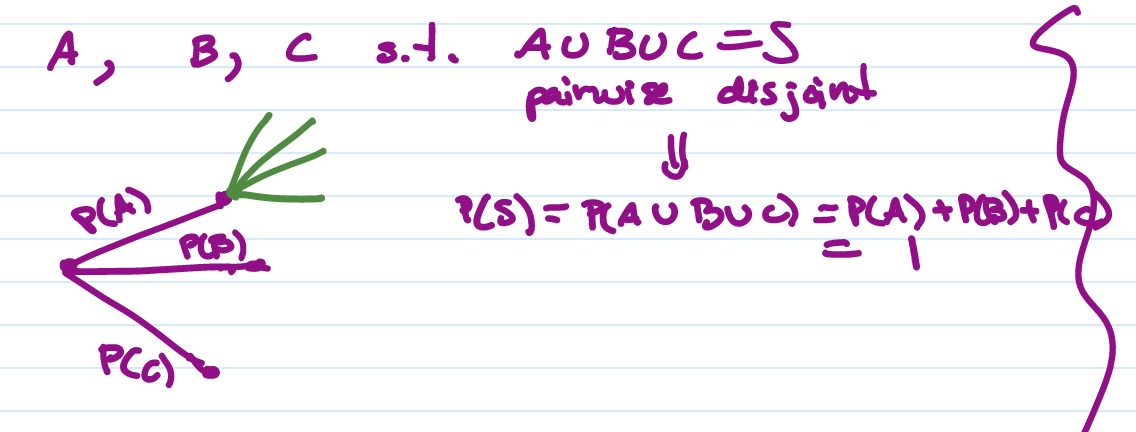 A, B, C s.t. A ∪ B ∪ C = S
pairwise disjoint
⇓
P(A)
P(S) = P(A ∪ B ∪ C) = P(A) + P(B) + P(C)
P(B)
= 1
P(C)